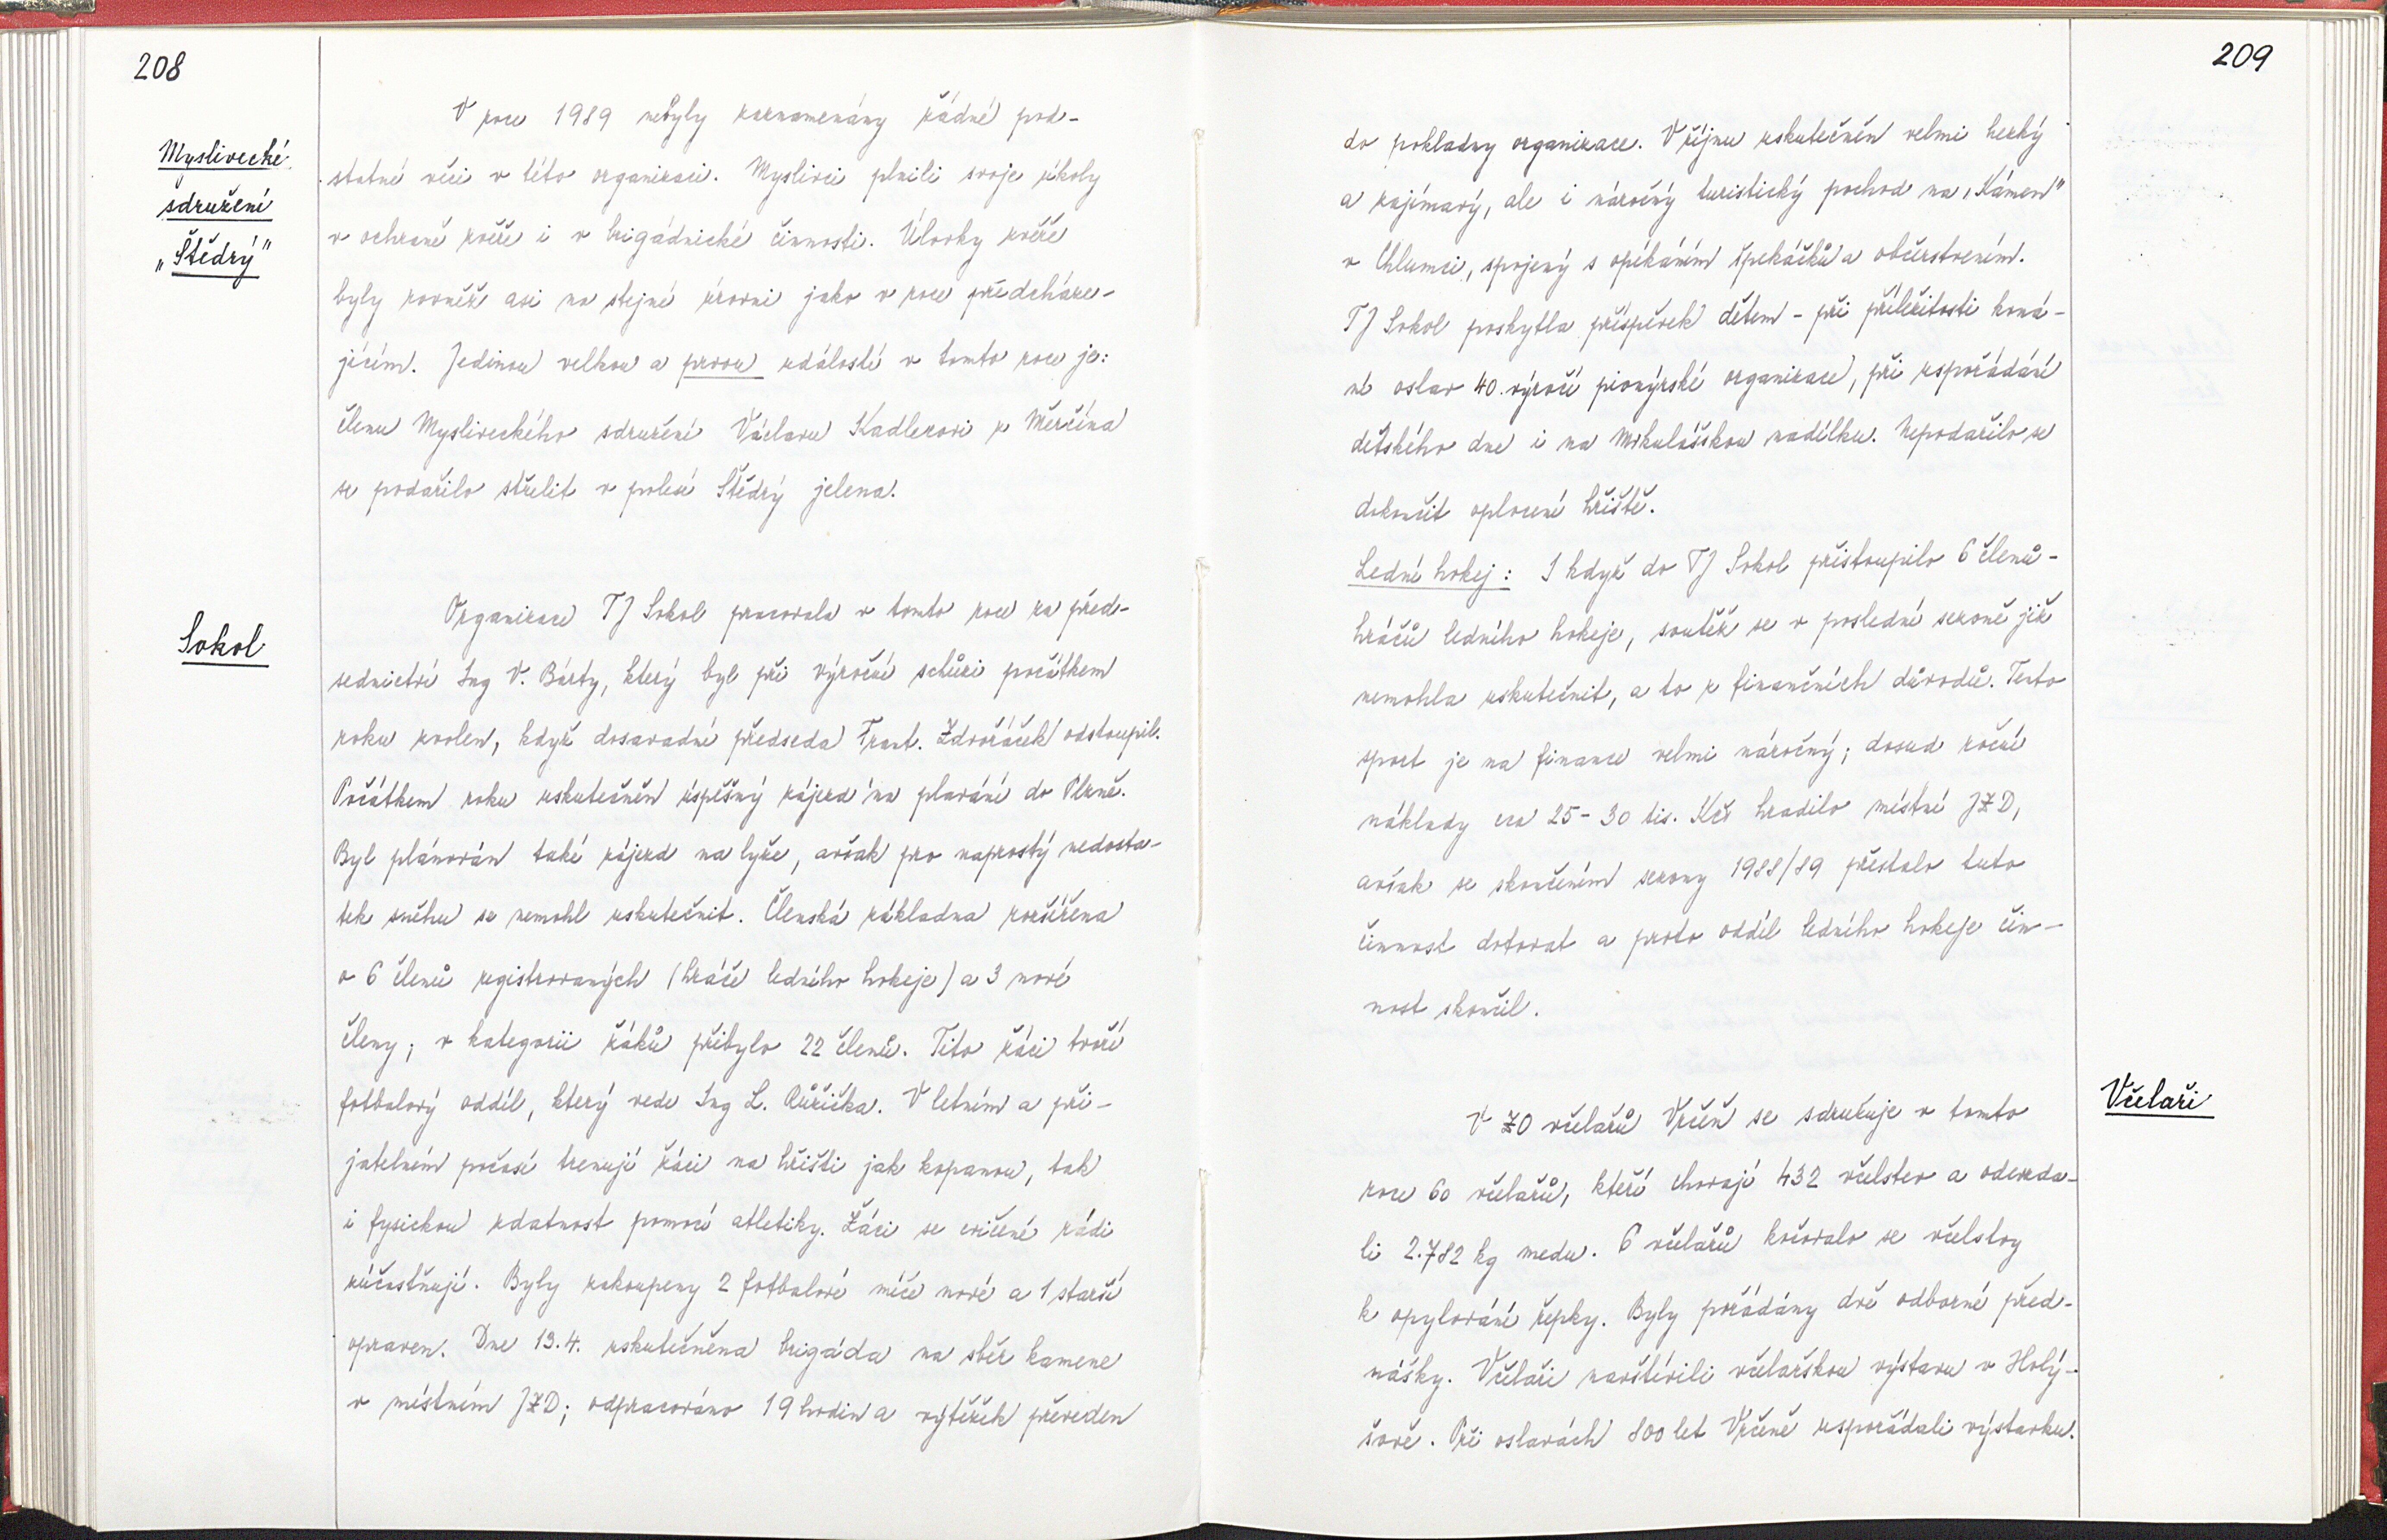 208
Myslivecké
sdružení
„Štědrý"
V roce 1989 nebyly zaznamenány žádné pod-
statné věci v této organizaci. Myslivci plnili svoje úkoly
v ochraně zvěře i v brigádnické činnosti. Úlovky zvěře
byly rovněž asi na stejné úrovni jako v roce předcháze-
jícím. Jedinou velkou a prvou událostí v tomto roce je:
členu Mysliveckého sdružení Václavu Kadlecovi z Měrčína
se podařilo střelit v polesí Štědrý jelena.
Sokol
Organizace TJ Sokol pracovala v tomto roce za před-
sednictví Ing V. Bárty, který byl při výroční schůzi počátkem
roku zvolen, když dosavadní předseda Frant. Zdvořáček odstoupil.
Počátkem roku uskutečněn úspěšný zájezd na plavání do Plzně.
Byl plánován také zájezd na lyže, avšak pro naprostý nedosta-
tek sněhu se nemohl uskutečnit. Členská základna rozšířena
o 6 členů registrovaných (hráče ledního hokeje) a 3 nové
členy; v kategorii žáků přibylo 22 členů. Tito žáci tvoří
fotbalový oddíl, který vede Ing L. Růžička. V letním a při-
jatelném počasí trenují žáci na hřišti jak kopanou, tak
i fysickou zdatnost pomocí atletiky. Žáci se cvičení rádi
zúčastňují. Byly zakoupeny 2 fotbalové míče nové a 1 starší
opraven. Dne 13.4. uskutečněna brigáda na sběr kamene
v místním JZD; odpracováno 19 hodin a výtěžek převeden
209
do pokladny organizace. V říjnu uskutečněn velmi hezký
a zajímavý, ale i náročný turistický pochod na „Kámen"
v Chlumci, spojený s opékáním špekáčků a občerstvením.
TJ Sokol poskytla příspěvek dětem - při příležitosti koná-
ní oslav 40. výročí pionýrské organizace, při uspořádání
dětského dne i na Mikulášskou nadílku. Nepodařilo se
dokončit oplocení hřiště.
Lední hokej: I když do TJ Sokol přistoupilo 6 členů-
hráčů ledního hokeje, soutěž se v poslední sezoně již
nemohla uskutečnit, a to z finančních důvodů. Tento
sport je na finance velmi náročný; dosud roční
náklady cca 25-30 tis. Kčs hradilo místní JZD,
avšak se skončením sezony 1988/89 přestalo tuto
činnost dotovat a proto oddíl ledního hokeje čin-
nost skončil.
Včelaři
V ZO včelařů Vrčeň se sdružuje v tomto
roce 60 včelařů, kteří chovají 432 včelstev a odevzda-
li 2.782 kg medu. 6 včelařů kočovalo se včelstvy
k opylování řepky. Byly pořádány dvě odborné před-
nášky. Včelaři navštívili včelařskou výstavu v Holý-
šově. Při oslavách 800 let Vrčeně uspořádali výstavku.